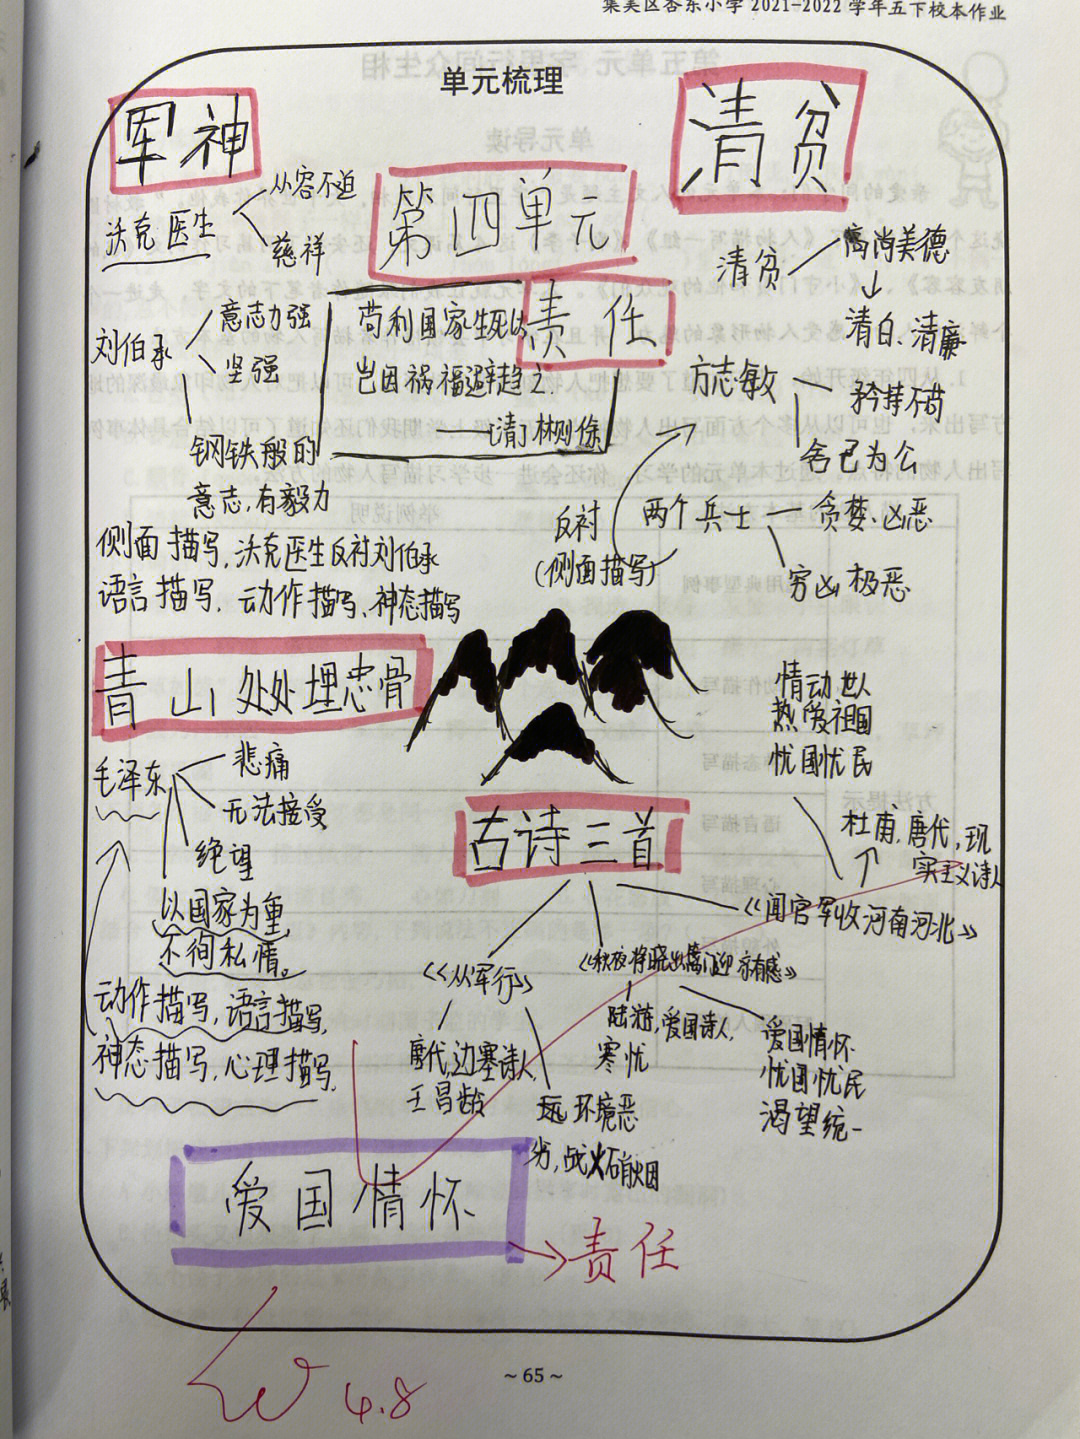 集美区杏东小学 2021-2022 学年五下校本作业
单元梳理
军神
沃克医生
从容不迫
慈祥
刘伯承
意志力强
坚强
钢铁般的
意志,有毅力
侧面描写,沃克医生反衬刘伯承
语言描写、动作描写、神态描写
第四单元
责任
苟利国家生死以
岂因祸福避趋之
——清 林则徐
清贫
清贫
高尚美德
清白、清廉
方志敏
矜持不苟
舍己为公
两个兵士
贪婪、凶恶
穷凶极恶
反衬
(侧面描写)
青山处处埋忠骨
毛泽东
悲痛
无法接受
绝望
以国家为重,
不徇私情。
动作描写,语言描写,
神态描写,心理描写,
古诗三首
《从军行》
唐代,边塞诗人,
王昌龄
环境恶
劣,战火硝烟
《秋夜将晓出篱门迎凉有感》
陆游,爱国诗人,
爱国情怀
忧国忧民
渴望统一
《闻官军收河南河北》
杜甫,唐代,现
实主义诗人
热爱祖国
忧国忧民
爱国情怀
责任
4.8
~65~